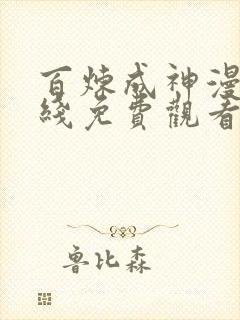 百炼成神漫
綫免費觀看
魯比森